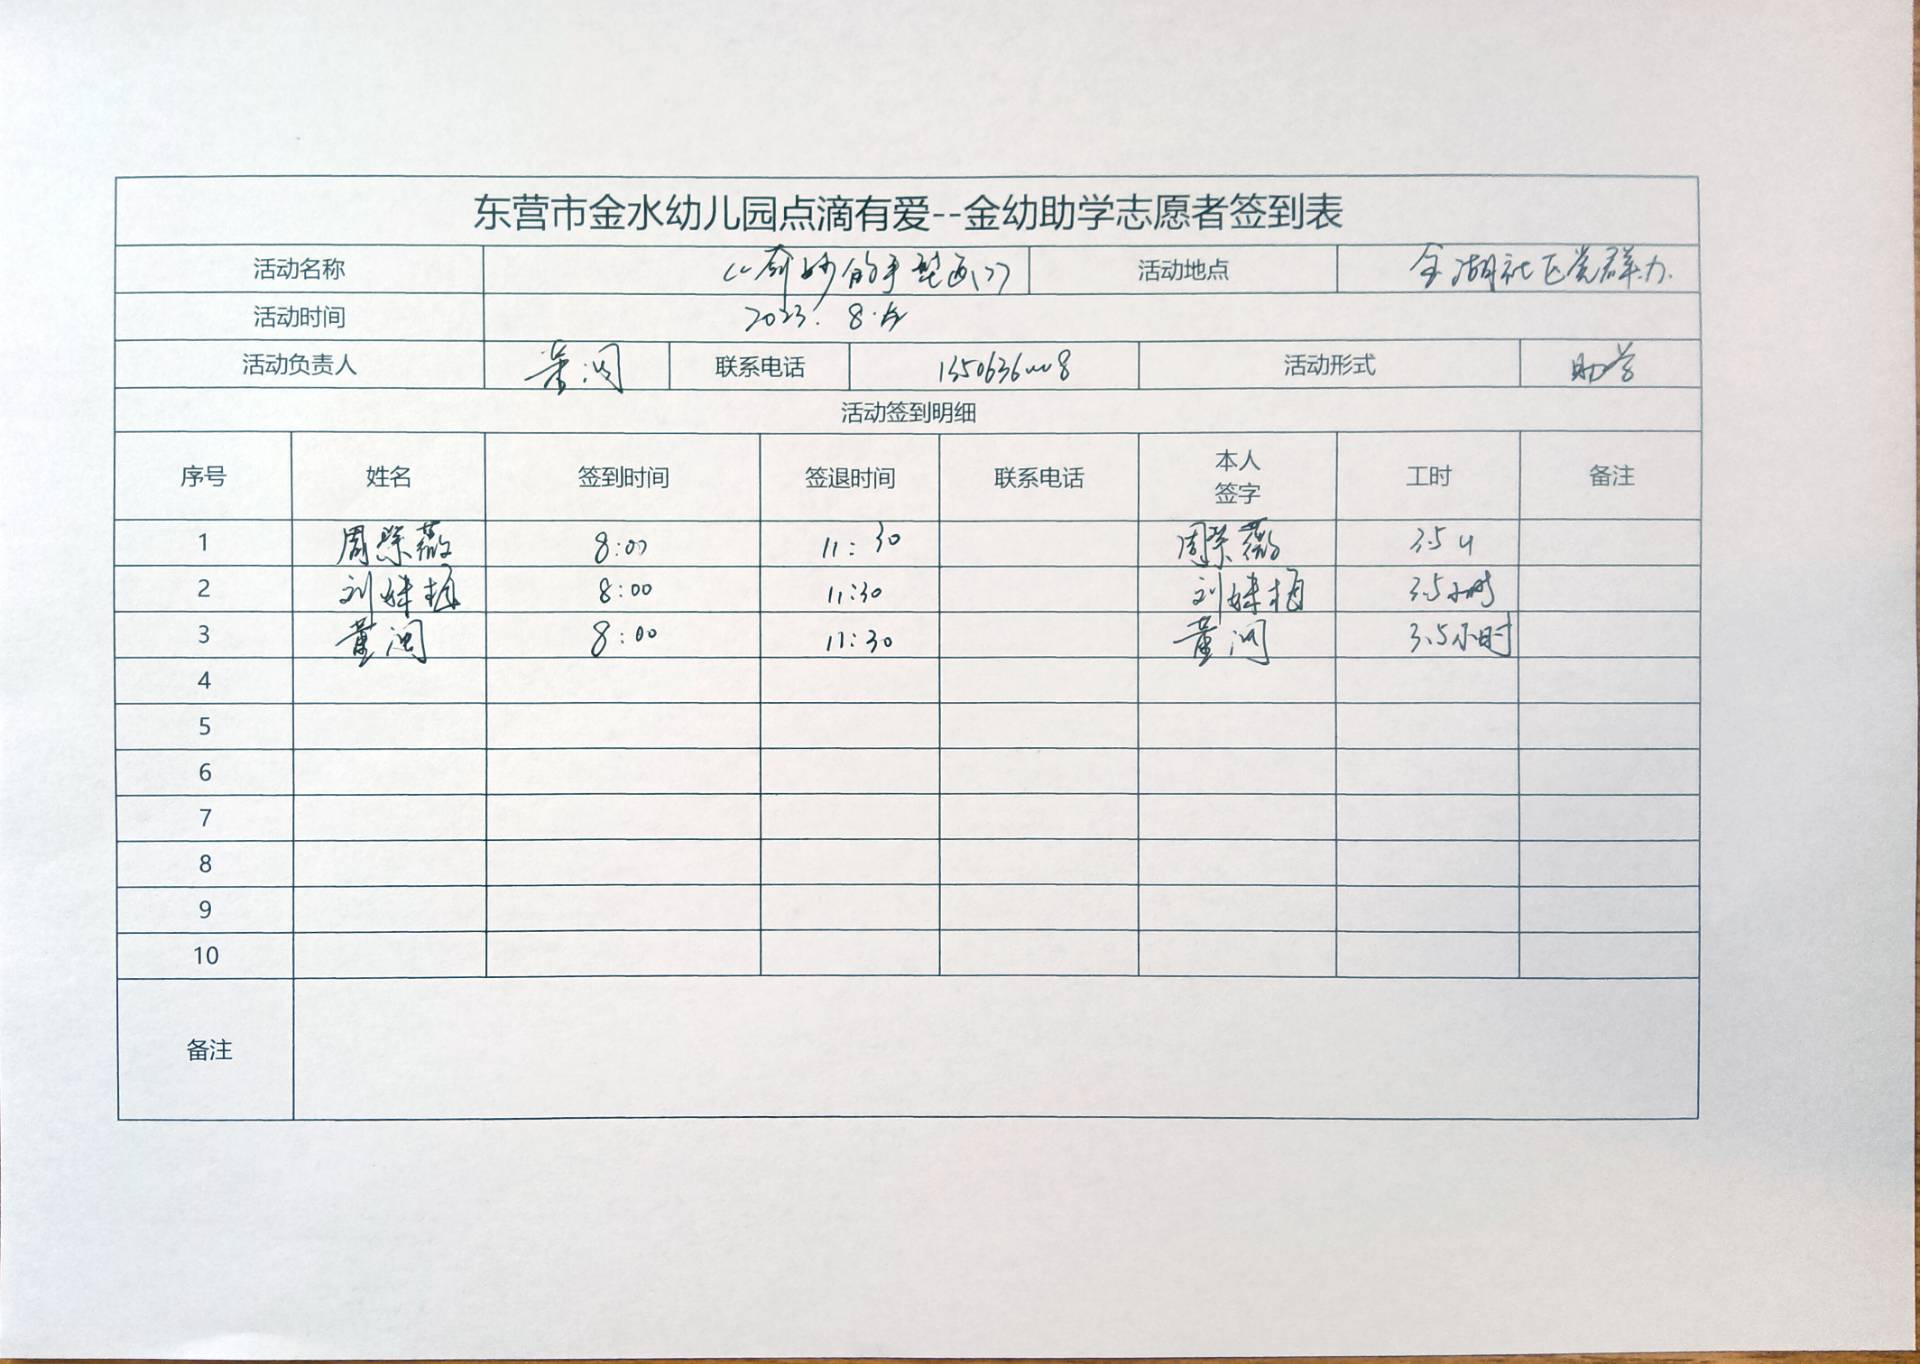 东营市金水幼儿园点滴有爱--金幼助学志愿者签到表
活动名称 《奇妙的手型画》 活动地点 金湖社区党群办
活动时间 2023. 8.
活动负责人 董闵 联系电话 活动形式 助学
活动签到明细
序号 姓名 签到时间 签退时间 联系电话 本人 签字 工时 备注
1 周荣薇 8:00 11:30 周荣薇 3.5
2 刘妹梅 8:00 11:30 刘妹梅 3.5小时
3 董闵 8:00 11:30 董闵 3.5小时
4
5
6
7
8
9
10
备注